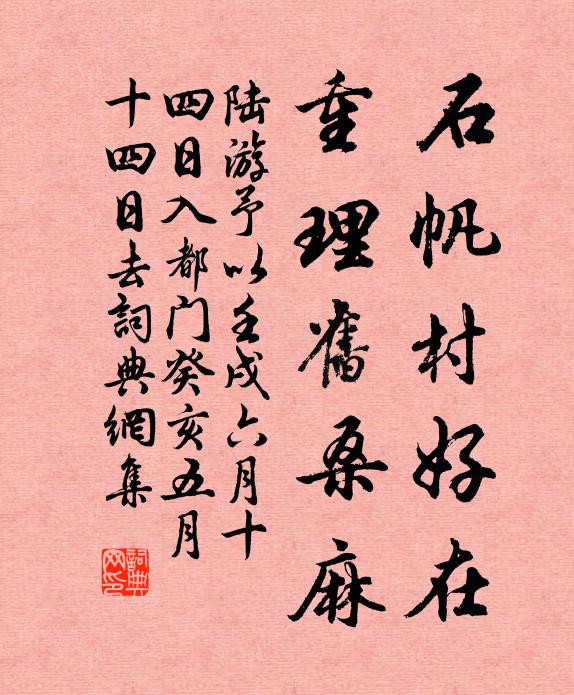 石帆村好在
重理舊桑麻
陆游予以壬戌六月十
四日入都门癸亥五月
十四日去詞典網集
詞典
网印